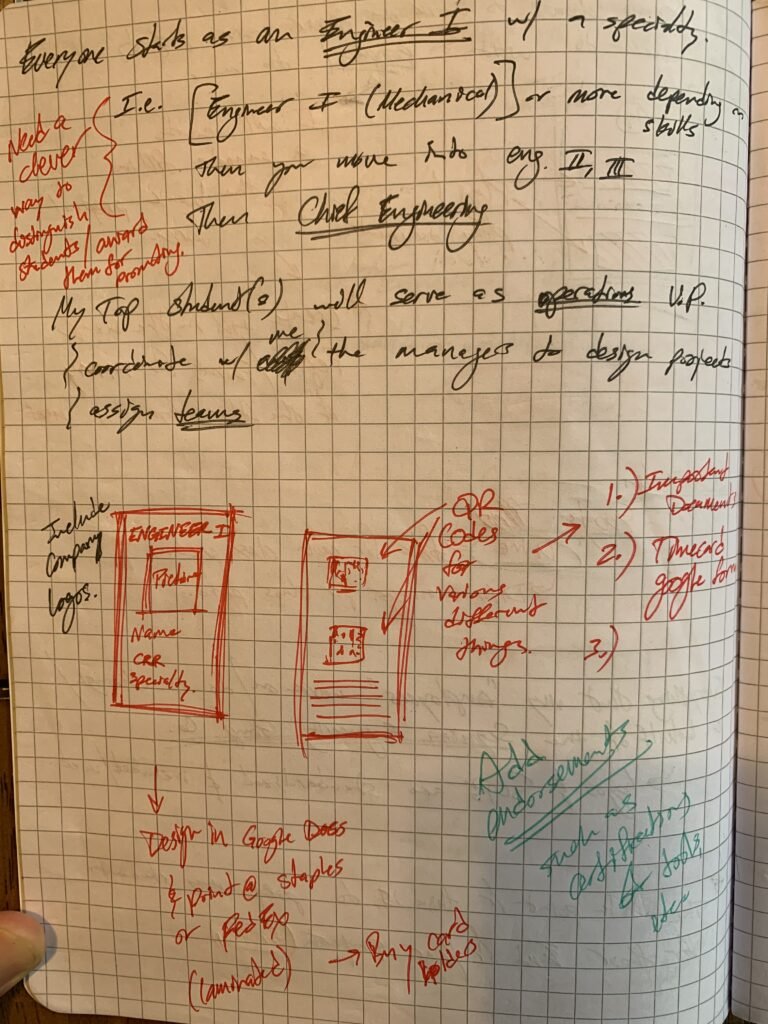 Everyone starts as an Engineer I w/ a specialty.
I.e. [Engineer I (Mechanical)] or more depending on
skills
Then you move into eng. II, III
Then Chief Engineering
Need a
clever
way to
distinguish
students/award
them for
promoting.
My Top student(s) will serve as operations V.P.
& coordinate w/ me & the managers to design projects
& assign teams
Include
Company
Logos.
ENGINEER I
Picture
Name
specialty.
QR
Codes
for
various
different
things.
1.) Important
Documents
2.) Timecard
google form
3.)
Add
endorsements
such as
certifications
tools
etc
Design in Google Docs
& print @ staples
or FedEx
(laminated) → Buy card
holders